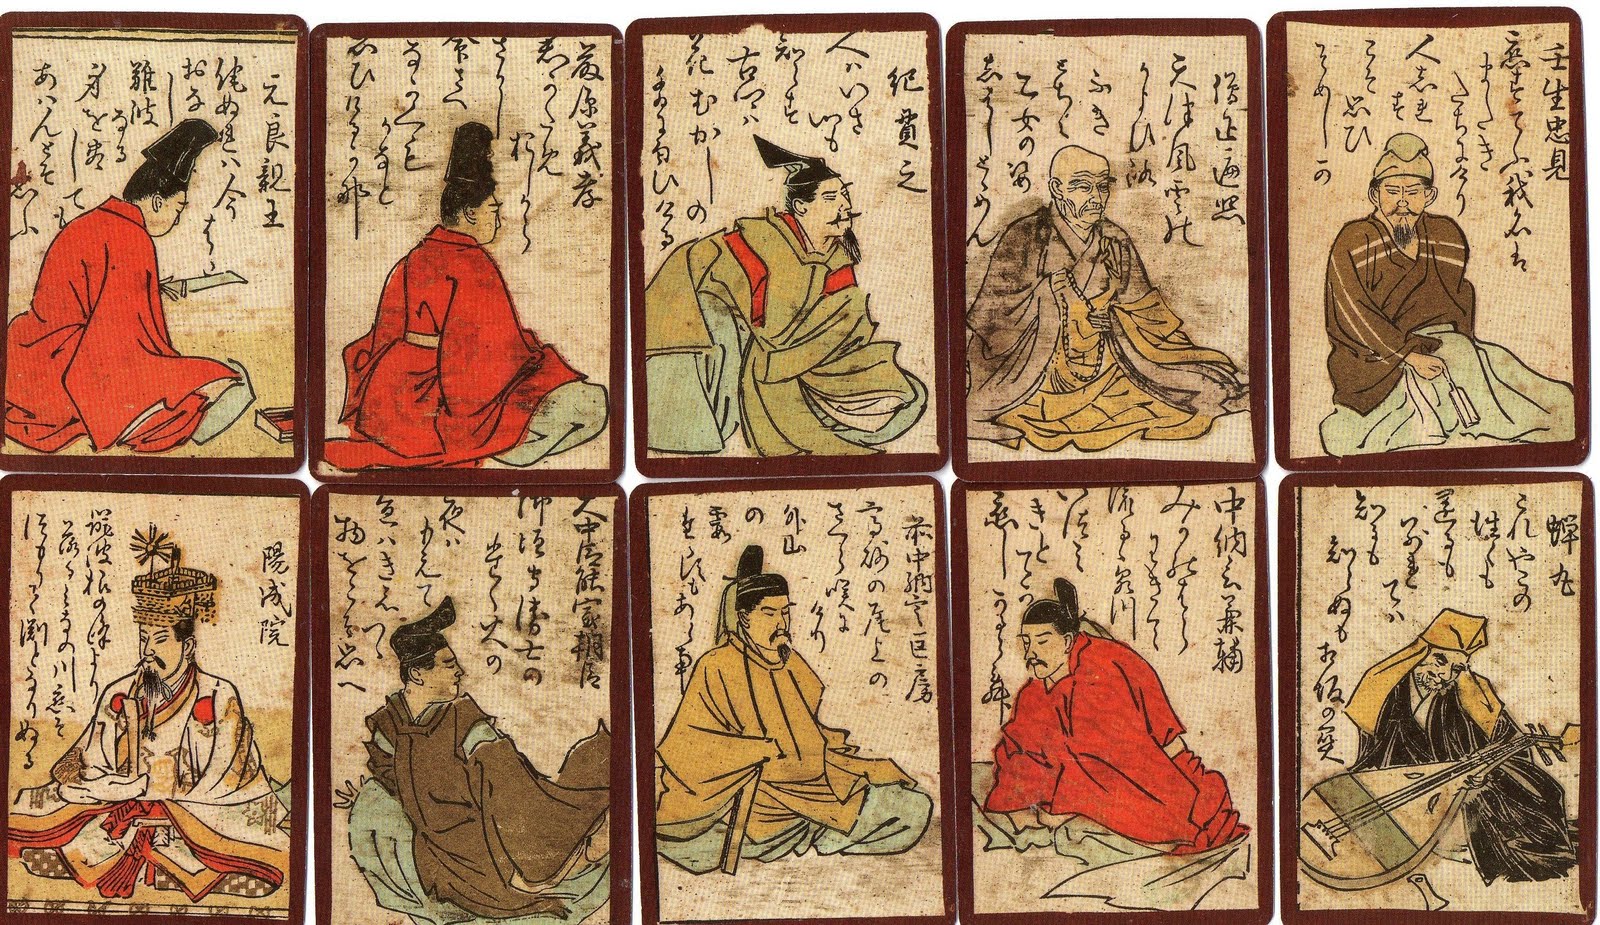 元良親王
侘ぬれハ今
はた
おな
し
難波
なる
身を尽
しても
あハんとそ
思ふ
藤原義孝
君かため
おしから
さりし
命さへ
なかくも
かなと
思ひけるか那
紀貫之
人ハいさ
心も
知らす
古さとハ
花むかしの
香に匂ひける
僧正遍照
天津風雲の
かよひ路
ふき
とちよ
乙女の姿
しはしとゝめん
壬生忠見
恋すてふ我名は
またき
たちにけり
人しれす
こそ
思ひ
そめしか
陽成院
筑波根の峰より
落るみなの川恋そ
つもりて渕となりぬる
大中臣能宣朝臣
御垣守衛士の
たく火の
夜ハ
もえて
昼ハきえつゝ
物をこそ思へ
前中納言匡房
高砂の尾上の
さくら咲に
けり
外山
の
霞
たゝすもあらなむ
中納言兼輔
みかのはら
わきて
流るゝ泉川
いつみ
きとてか
恋しかるらん
蝉丸
これやこの
行も
帰るも
別れ
てハ
知るも
知らぬも
あふ坂の関